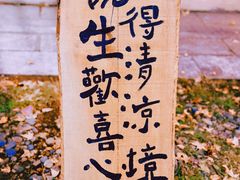 得清涼境
生歡喜心